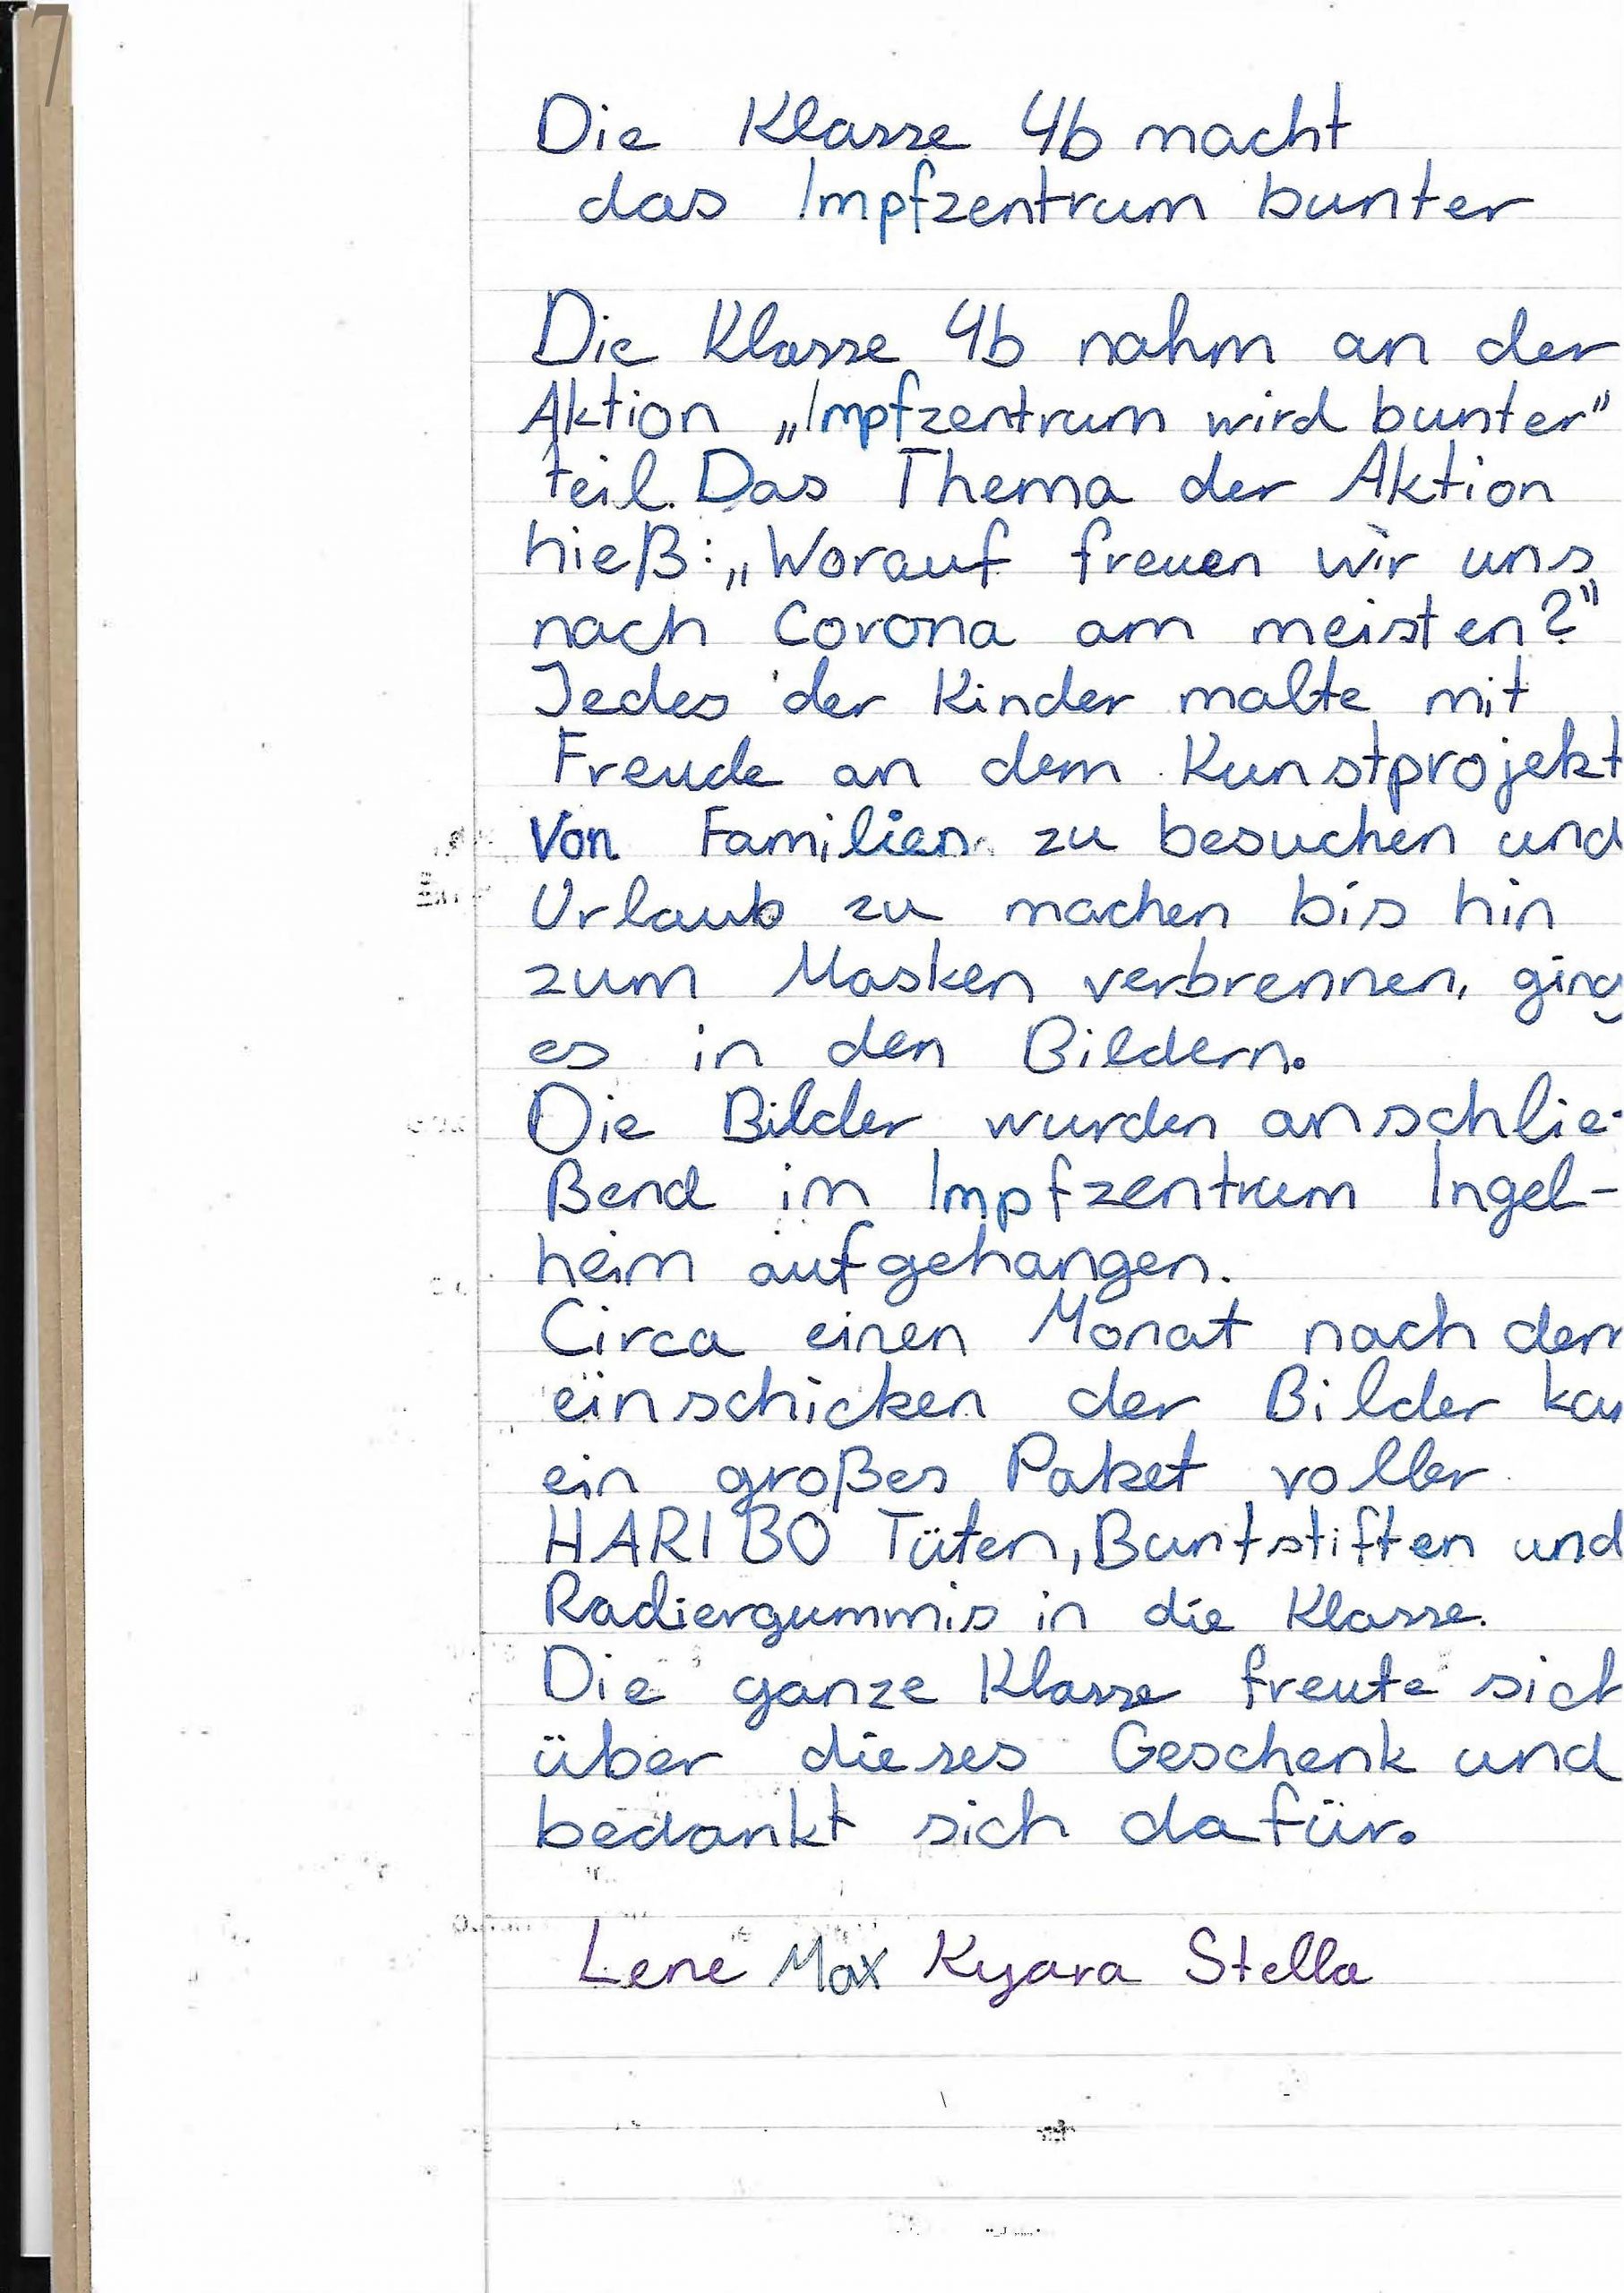 7
Die Klasse 4b macht
das Impfzentrum bunter
Die Klasse 4b nahm an der
Aktion „Impfzentrum wird bunter"
teil. Das Thema der Aktion
hieß: „Worauf freuen wir uns
nach Corona am meisten?"
Jedes der Kinder malte mit
Freude an dem Kunstprojekt
Von Familien zu besuchen und
Urlaub zu machen bis hin
zum Masken verbrennen, ging
es in den Bildern.
Die Bilder wurden anschlie-
ßend im Impfzentrum Ingel-
heim aufgehangen.
Circa einen Monat nach dem
einschicken der Bilder ka
ein großes Paket voller
HARIBO Tüten, Buntstiften und
Radiergummis in die Klasse.
Die ganze Klasse freute sich
über dieses Geschenk und
bedankt sich dafür.
Lene Max Kyara Stella